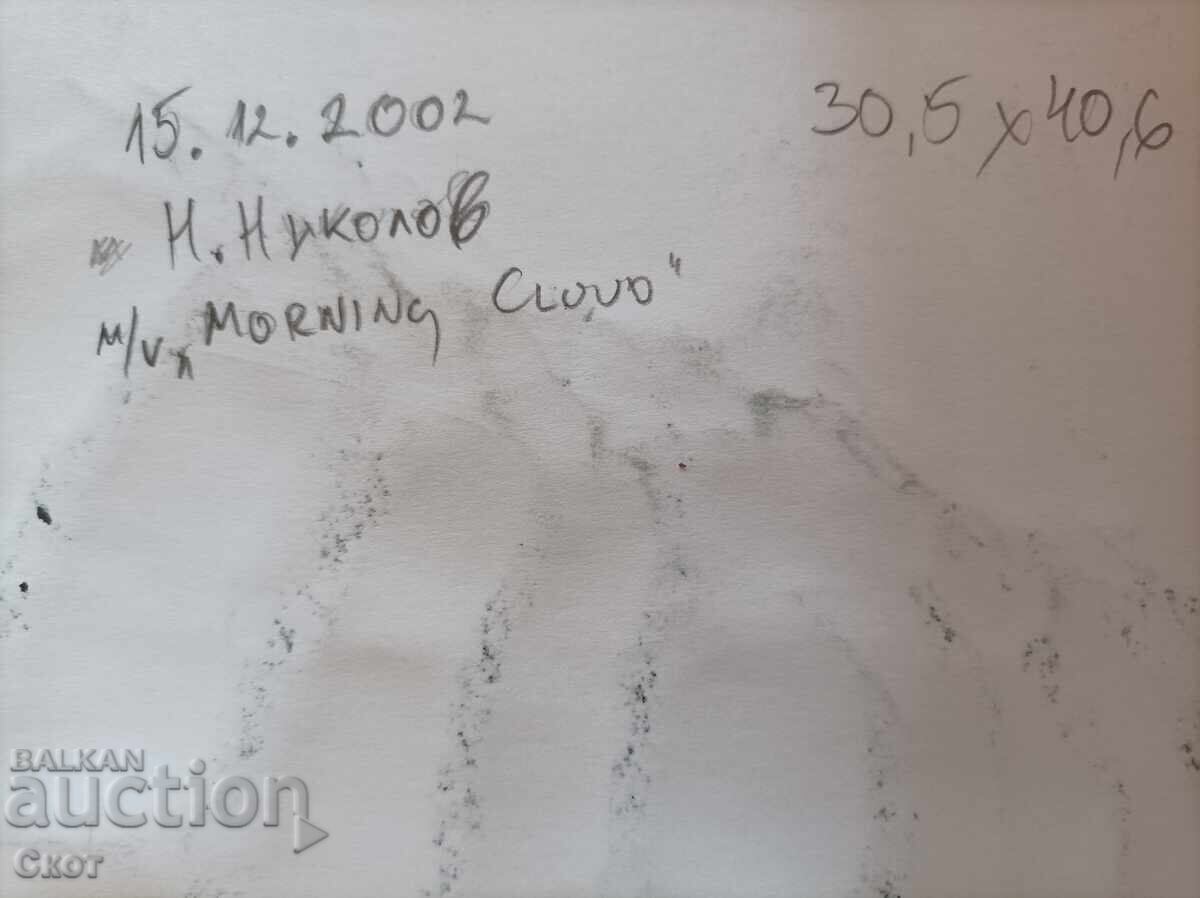 15.12.2002
30,5 x 40,6
Н. Николов
M/V „MORNING CLOUD"
BALKAN
auction
Скот